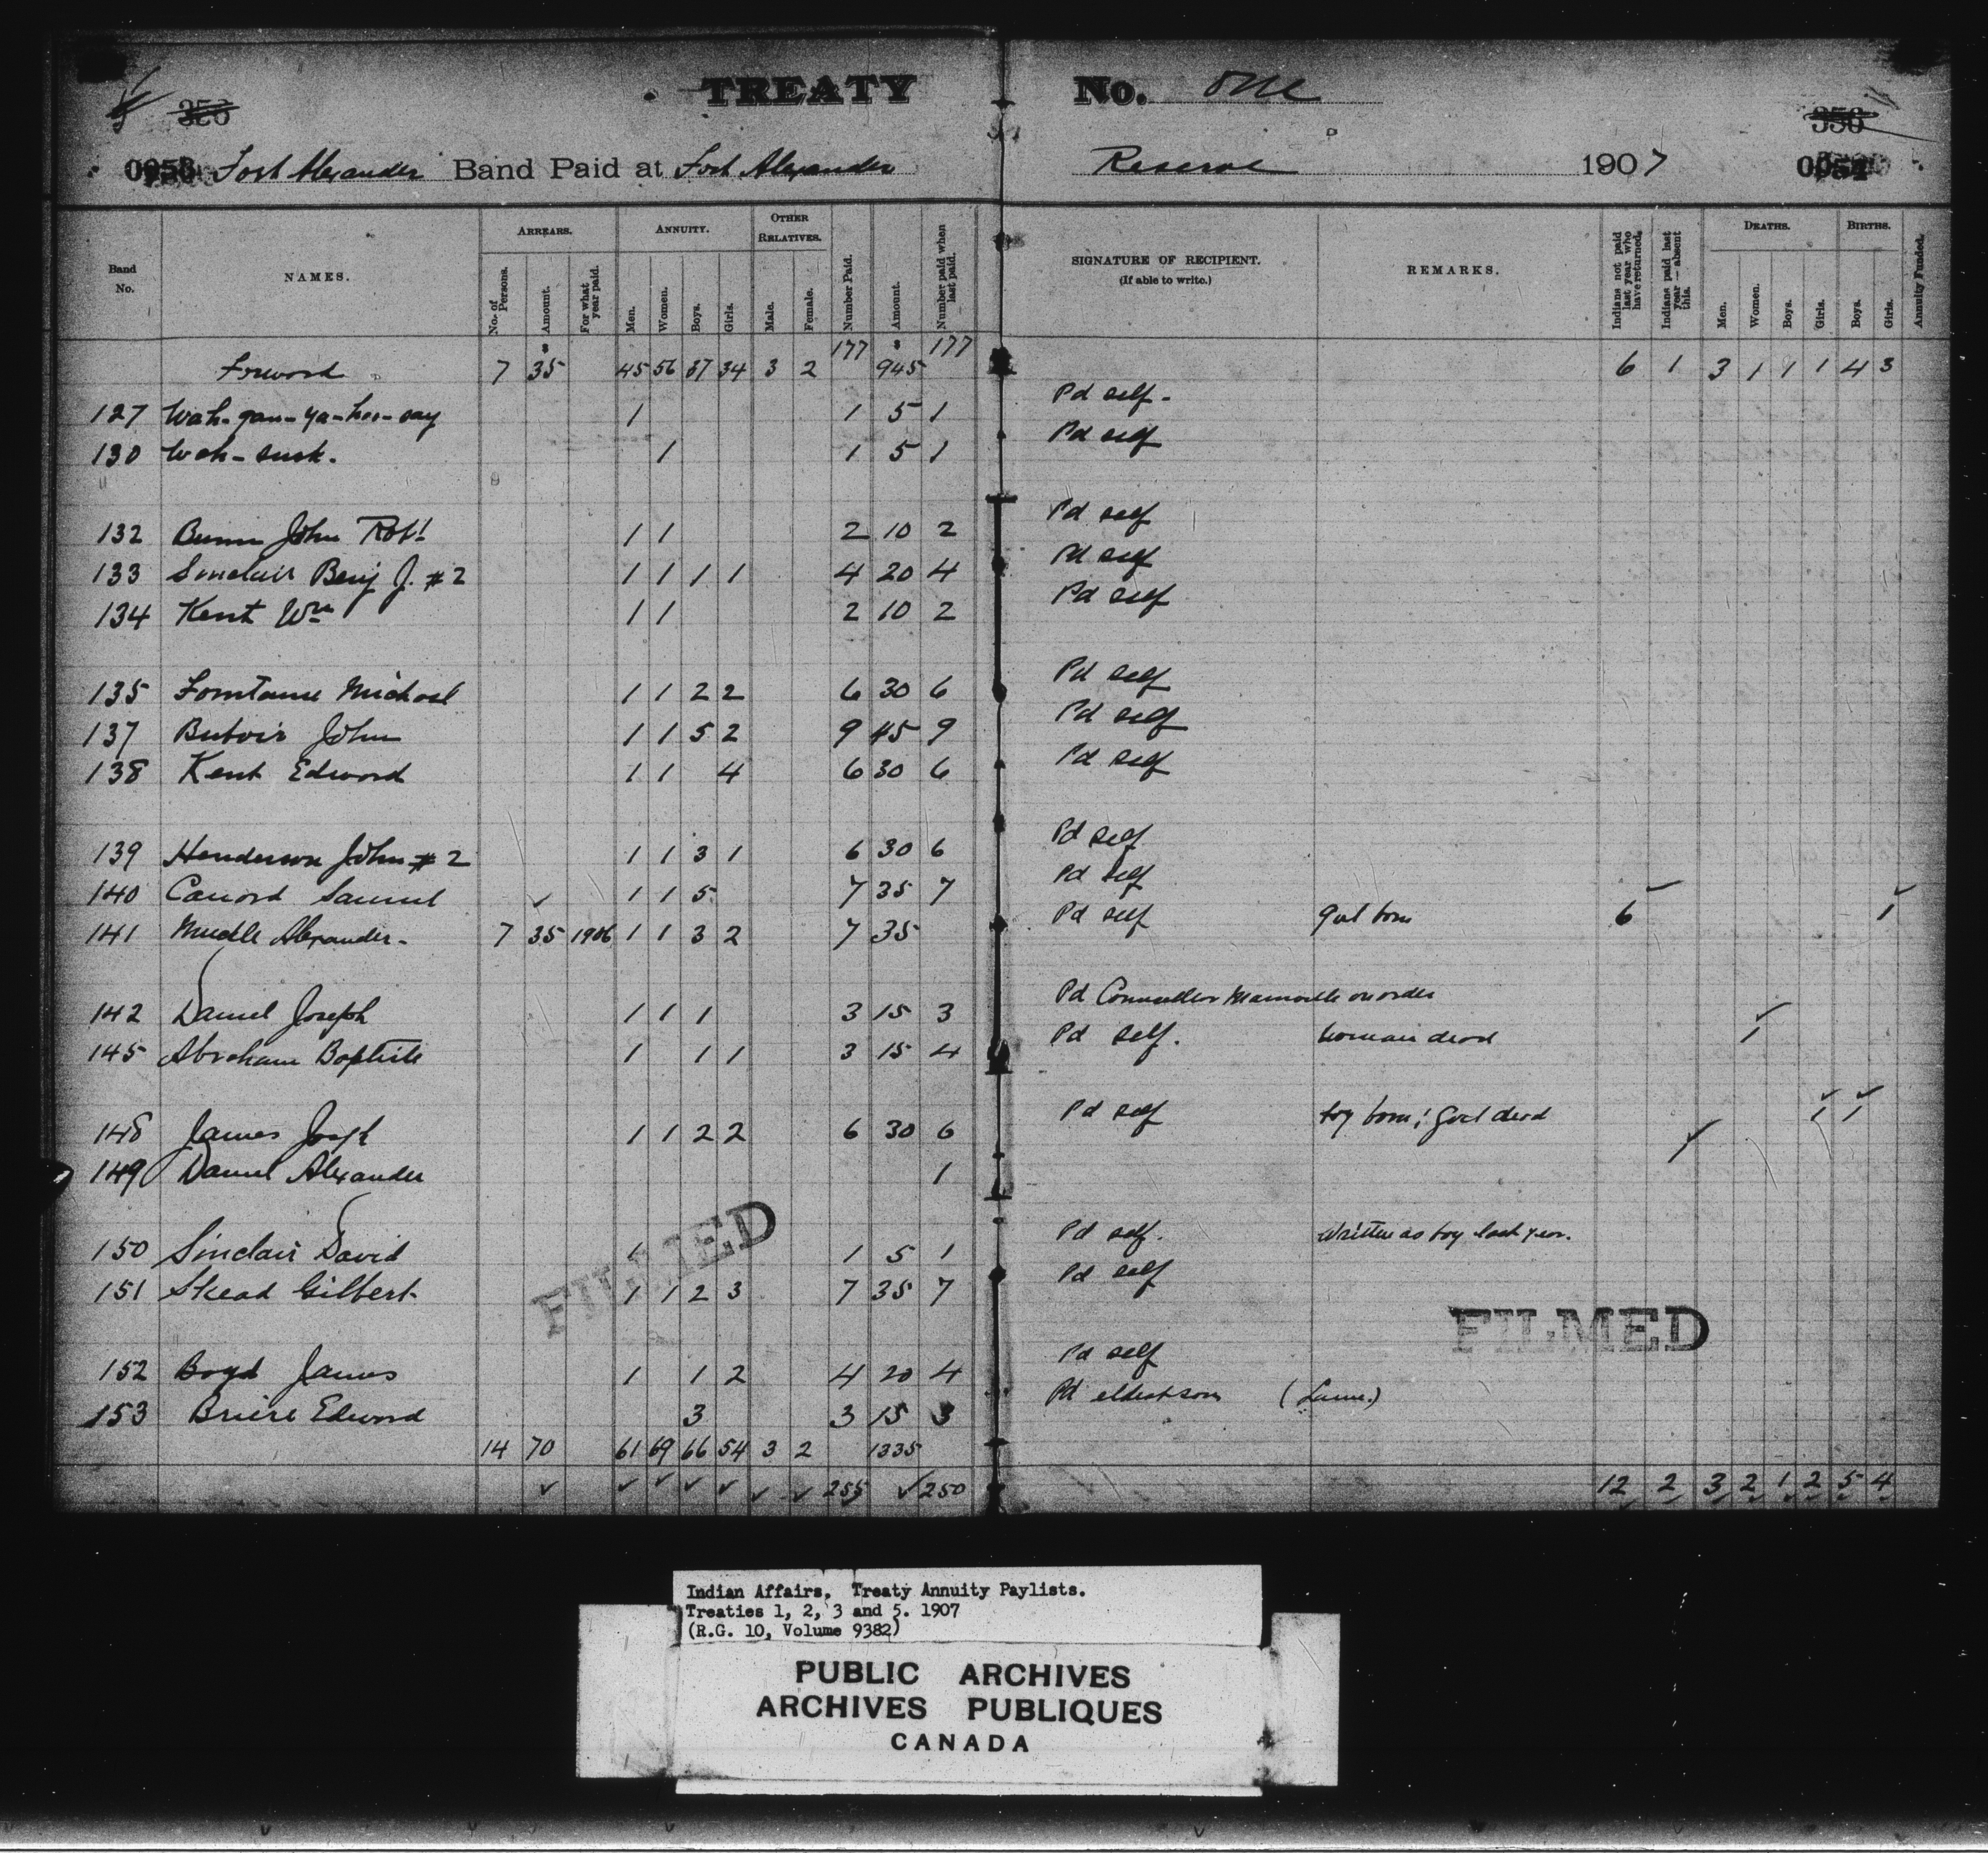 TREATY No. One
356 356
0053 Fort Alexander Band Paid at Fort Alexander Reserve 1907 0054
Band No. NAMES. ARREARS. ANNUITY. OTHER RELATIVES. Number Paid. Amount. Number paid when last paid. SIGNATURE OF RECIPIENT. (If able to write.) REMARKS. Indians not paid last year who have returned. Indians paid last year—absent this. DEATHS. BIRTHS. Annuity Funded.
No. of Persons. Amount. For what year paid. Men. Women. Boys. Girls. Male. Female. Men. Women. Boys. Girls. Boys. Girls.
Forword 7 35 45 56 37 34 3 2 177 945 177 6 1 3 1 1 1 4 3
127 Wah-gan-ya-hoo-say 1 1 5 1 Pd self-
130 Wah-susk. 1 1 5 1 Pd self
132 Bunn John Robt 1 1 2 10 2 Pd self
133 Sinclair Benj J. #2 1 1 1 1 4 20 4 Pd self
134 Kent Wm 1 1 2 10 2 Pd self
135 Fontaine Michael 1 1 2 2 6 30 6 Pd self
137 John 1 1 5 2 9 45 9 Pd self
138 Kent Edward 1 1 4 6 30 6 Pd self
139 Henderson John #2 1 1 3 1 6 30 6 Pd self
140 Canord Samuel 1 1 5 7 35 7 Pd self
141 Alexander- 7 35 1906 1 1 3 2 7 35 Pd self girl born 6 1
142 Daniel Joseph 1 1 1 3 15 3 Pd Councellor on order
145 Abraham Baptiste 1 1 1 3 15 4 Pd self. woman dead 1
148 James Joseph 1 1 2 2 6 30 6 Pd self boy born; girl dead 1 1
149 Daniel Alexander 1 1
150 Sinclair David 1 1 5 1 Pd self. Written as boy last year.
151 Skead Gilbert 1 1 2 3 7 35 7 Pd self
FILMED FILMED
152 Boyd James 1 1 2 4 20 4 Pd self
153 Briere Edward 3 3 15 3 Pd eldest son (Lame.)
14 70 61 69 66 54 3 2 1335
255 250 12 2 3 2 1 2 5 4
Indian Affairs. Treaty Annuity Paylists.
Treaties 1, 2, 3 and 5. 1907
(R.G. 10, Volume 9382)
PUBLIC ARCHIVES
ARCHIVES PUBLIQUES
CANADA